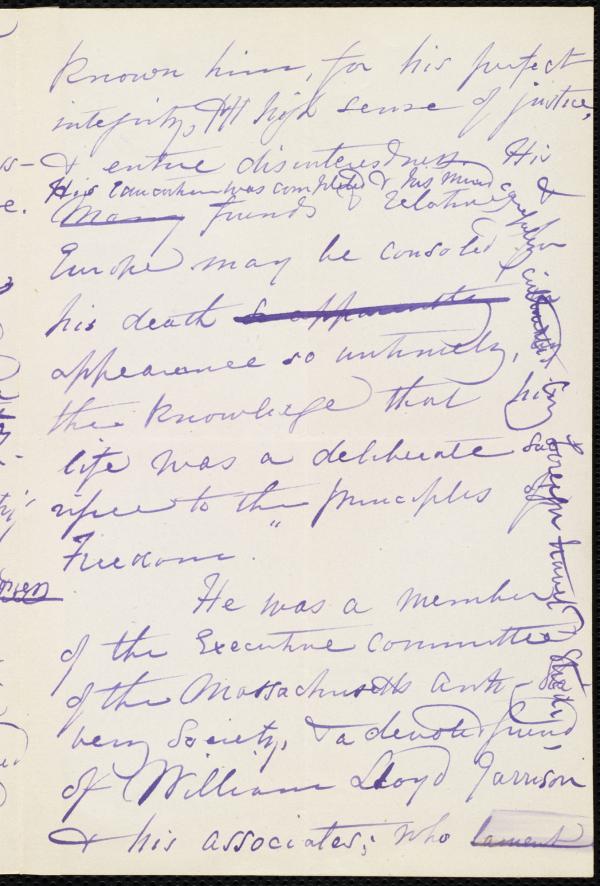 known him, for his perfect
integrity, high sense of justice,
& entire disinterestedness. His
His education was completed & his mind
Many friends & relatives
Europe may be consoled
his death so apparently
appearance so untimely,
the knowledge that his
life was a deliberate sac-
rifice to the principles of
Freedom.
He was a member
of the Executive Committee
of the Massachusetts Anti-Sla-
very Society, & a devoted friend
of William Lloyd Garrison
& his associates; who lament
by foreign travel & study,